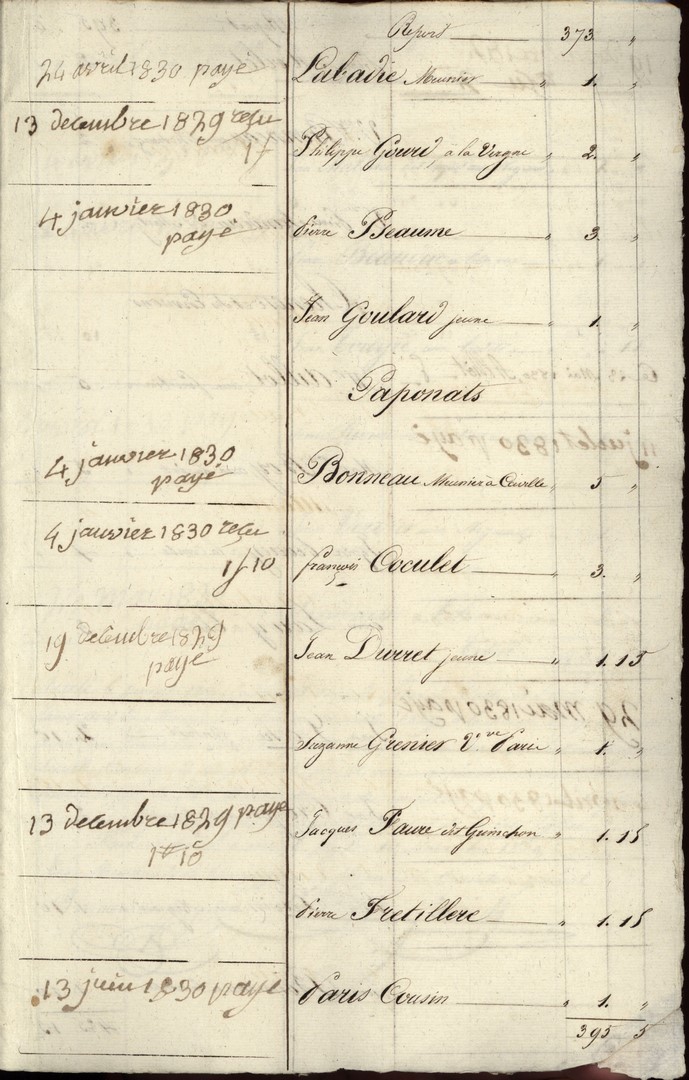 Report 373. "
24 avril 1830 payé Labadie Meunier " 1. "
13 decembre 1829 reçu
1f Philippe Gourd, a la Vergne " 2. "
4 janvier 1830
payé Pierre Beaume " 3. "
Jean Goulard jeune " 1. "
Paponats
4 janvier 1830
payé Bonneau Meunier à " 5 "
4 janvier 1830 reçu
1f 10 françois Coculet " 3. "
19 decembre 1829
payé Jean Durret jeune " 1. 15
Suzanne Grenier V.ve Paris " 1. "
13 decembre 1829 payé
1f 10 Jacques Faure dit Guinchon " 1. 15
Pierre Fretillere " 1. 15
13 juin 1830 payé Paris Cousin " 1. "
395 5